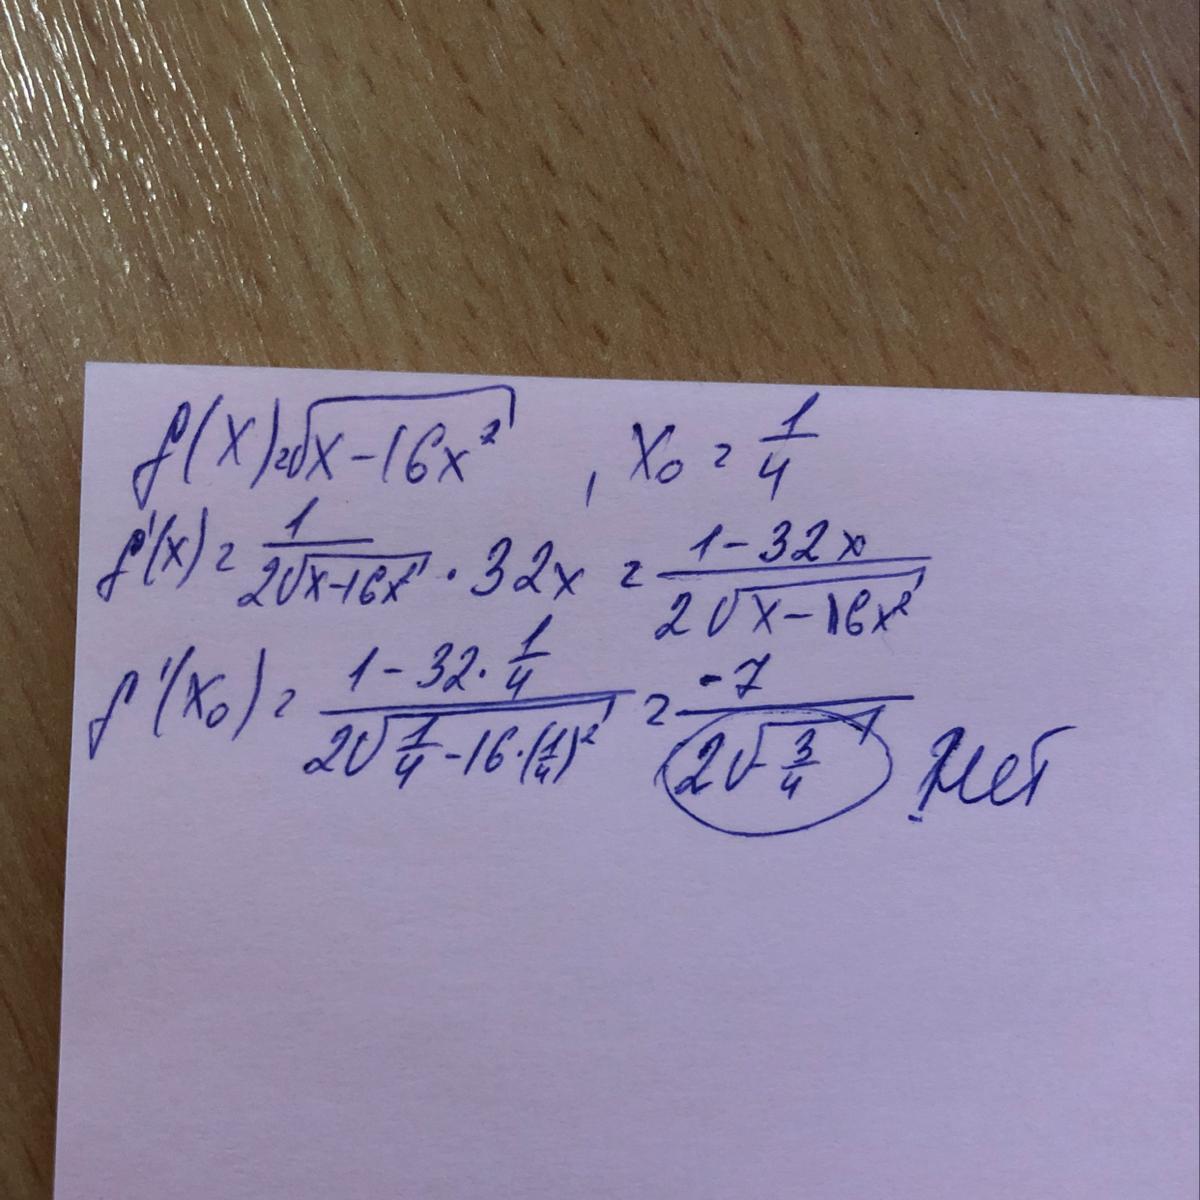 f(x)=√(x-16x²) , x₀ = 1/4
f'(x) = 1/(2√(x-16x²)) · 32x = (1-32x)/(2√(x-16x²))
f'(x₀) = (1-32·1/4)/(2√(1/4-16·(1/4)²)) = -7/(2√(-3/4)) нет